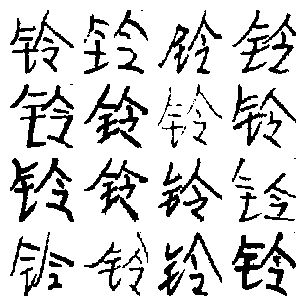 铃铃铃铃
铃铃铃铃
铃铃铃铃
铃铃铃铃